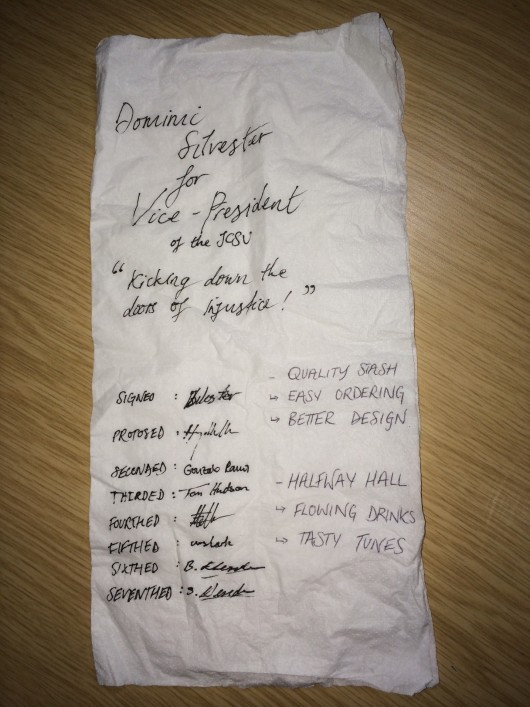 Dominic
Silvester
for
Vice-President
of the JCSU
"Kicking down the
doors of Injustice!"
- QUALITY STASH
↳ EASY ORDERING
↳ BETTER DESIGN
- HALFWAY HALL
↳ FLOWING DRINKS
↳ TASTY TUNES
SIGNED :
PROPOSED :
SECONDED : Gonzalo
THIRDED : Tom Hudson
FOURTHED :
FIFTHED :
SIXTHED : B.
SEVENTHED : S.